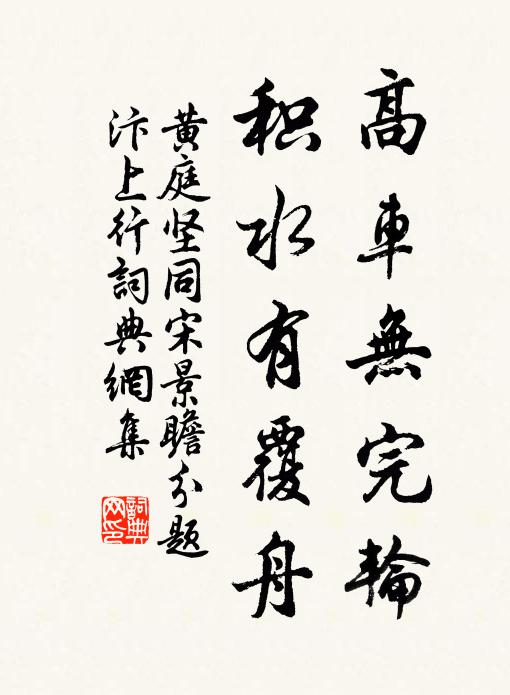 高車無完輪
积水有覆舟
黄庭坚同宋景瞻分题
汴上行詞典網集
詞典
网印